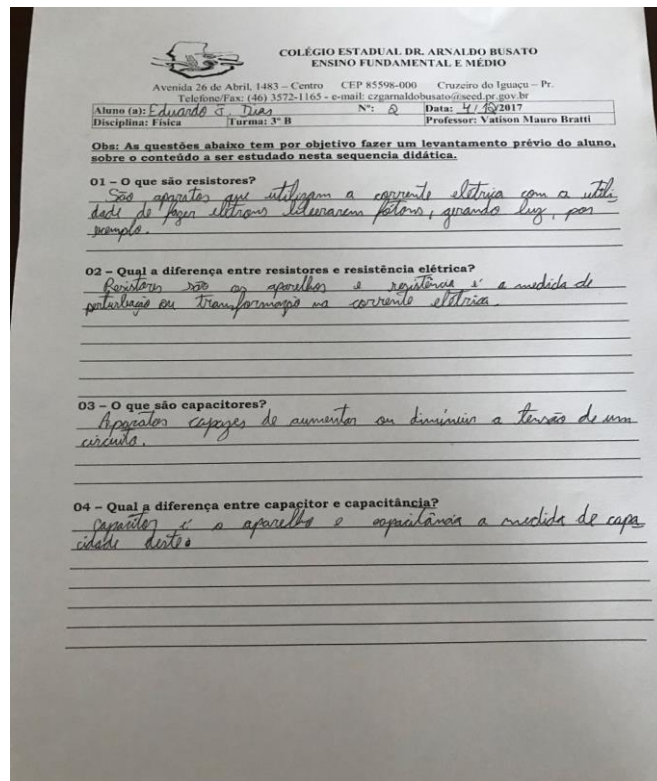 COLÉGIO ESTADUAL DR. ARNALDO BUSATO
ENSINO FUNDAMENTAL E MÉDIO
Avenida 26 de Abril, 1483 – Centro CEP 85598-000 Cruzeiro do Iguaçu – Pr.
Telefone/Fax: (46) 3572-1165 - e-mail: czgarnaldobusato@seed.pr.gov.br
Aluno (a): Eduardo J. Dias Nº: 2 Data: 4/12/2017
Disciplina: Física Turma: 3º B Professor: Vatison Mauro Bratti
Obs: As questões abaixo tem por objetivo fazer um levantamento prévio do aluno,
sobre o conteúdo a ser estudado nesta sequencia didática.
01 – O que são resistores?
São aparatos que utilizam a corrente elétrica com a utili
dade de fazer elétrons liberarem fótons, gerando luz, por
exemplo.
02 – Qual a diferença entre resistores e resistência elétrica?
Resistores são os aparelhos e resistência é a medida de
perturbação ou transformação na corrente elétrica.
03 – O que são capacitores?
Aparatos capazes de aumentar ou diminuir a tensão de um
circuito.
04 – Qual a diferença entre capacitor e capacitância?
Capacitor é o aparelho e capacitância a medida de capa
cidade deste.